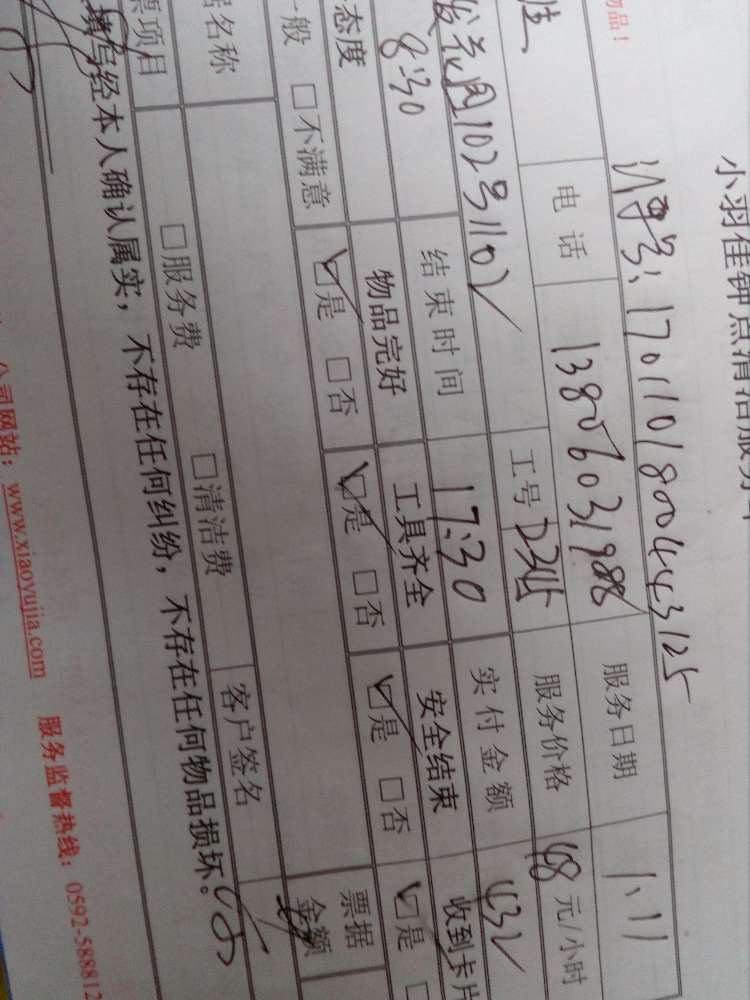 物品！
小羽佳钟点清洁服务
订单号：1701101800443125
电话 13806031988 服务日期 1.11
发花园102号1102 工号 D345 服务价格 48元/小时
8:30 结束时间 17:30 实付金额 432
态度 物品完好 工具齐全 安全结束 收到卡片
一般 □不满意 ☑是 □否 ☑是 □否 ☑是 □否 ☑是
名称 票据金额
票项目 □服务费 □清洁费 客户签名
填写经本人确认属实，不存在任何纠纷，不存在任何物品损坏。
公司网站：www.xiaoyujia.com 服务监督热线：0592-588812